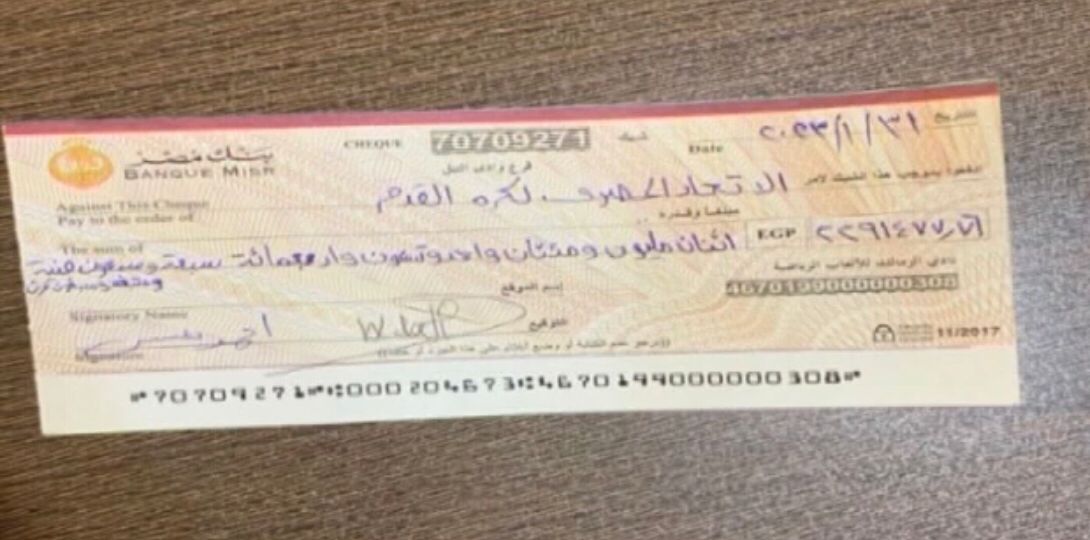 بنك مصر
BANQUE MISR
CHEQUE 70709271 شيك
فرع وادي النيل
Date ٢٠٢٣/١/٣١ التاريخ
Against This Cheque
Pay to the order of
ادفعوا بموجب هذا الشيك لأمر
الاتحاد المصرى لكره القدم
The sum of
مبلغا وقدره
EGP ٢٢٩١٤٧٧٫٧٦
اثنان مليون ومئتان واحد وتسعون واربعمائة سبعة وسبعون
نادي الزمالك للألعاب الرياضية
4670199000000308
إسم الموقع
Signatory Name
التوقيع
Signature
11/2017
70709271 000204673 4670199000000308